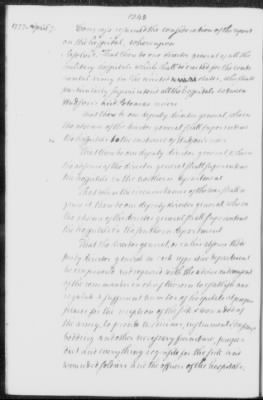 1777 April 7
Congress resumed the consideration of the report
on the hospitals, whereupon
Resolved, That there be one director general of all the
military hospitals which shall be erected for the conti-
nental army in the united states, who shall
particularly superintend all the hospitals between
Hudson's and river
That there be one deputy director general, who in
the absence of the director general shall superintend
the hospitals the eastward of Hudson's river
That there be one deputy director general, who in
the absence of the director general shall superintend
the hospitals in the northern department
That when the circumstances of the war shall
require it, there be one deputy director general, who in
the absence of the director general shall superintend
the hospitals in the southern department
That the director general, or in his absence the de-
puty director general in each department
be empowered and required with the advice and consent
of the commander in chief of the army to establish and
regulate a sufficient number of hospitals at proper
places for the reception of the sick and wounded of
the army, to provide medicines, instruments,
bedding and other necessary furniture, proper
diet and every thing requisite for the sick and
wounded soldiers and the officers of the hospitals.